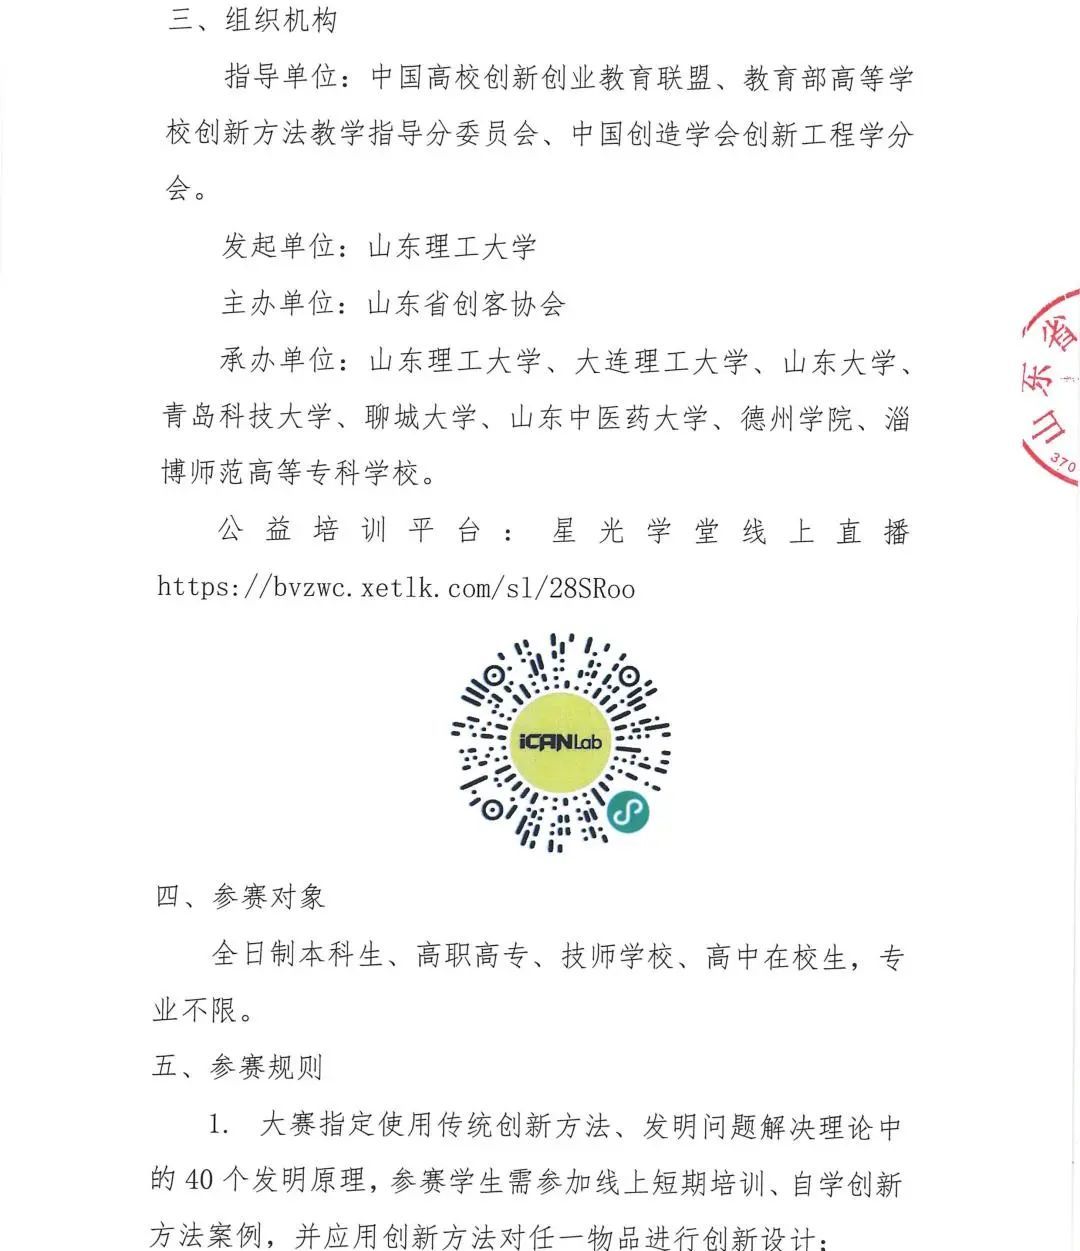 三、组织机构
指导单位：中国高校创新创业教育联盟、教育部高等学
校创新方法教学指导分委员会、中国创造学会创新工程学分
会。
发起单位：山东理工大学
主办单位：山东省创客协会
承办单位：山东理工大学、大连理工大学、山东大学、
青岛科技大学、聊城大学、山东中医药大学、德州学院、淄
博师范高等专科学校。
公益培训平台：星光学堂线上直播
https://bvzwc.xetlk.com/sl/28SRoo
iCANLab
山东省
370
四、参赛对象
全日制本科生、高职高专、技师学校、高中在校生，专
业不限。
五、参赛规则
1. 大赛指定使用传统创新方法、发明问题解决理论中
的40个发明原理，参赛学生需参加线上短期培训、自学创新
方法案例，并应用创新方法对任一物品进行创新设计；